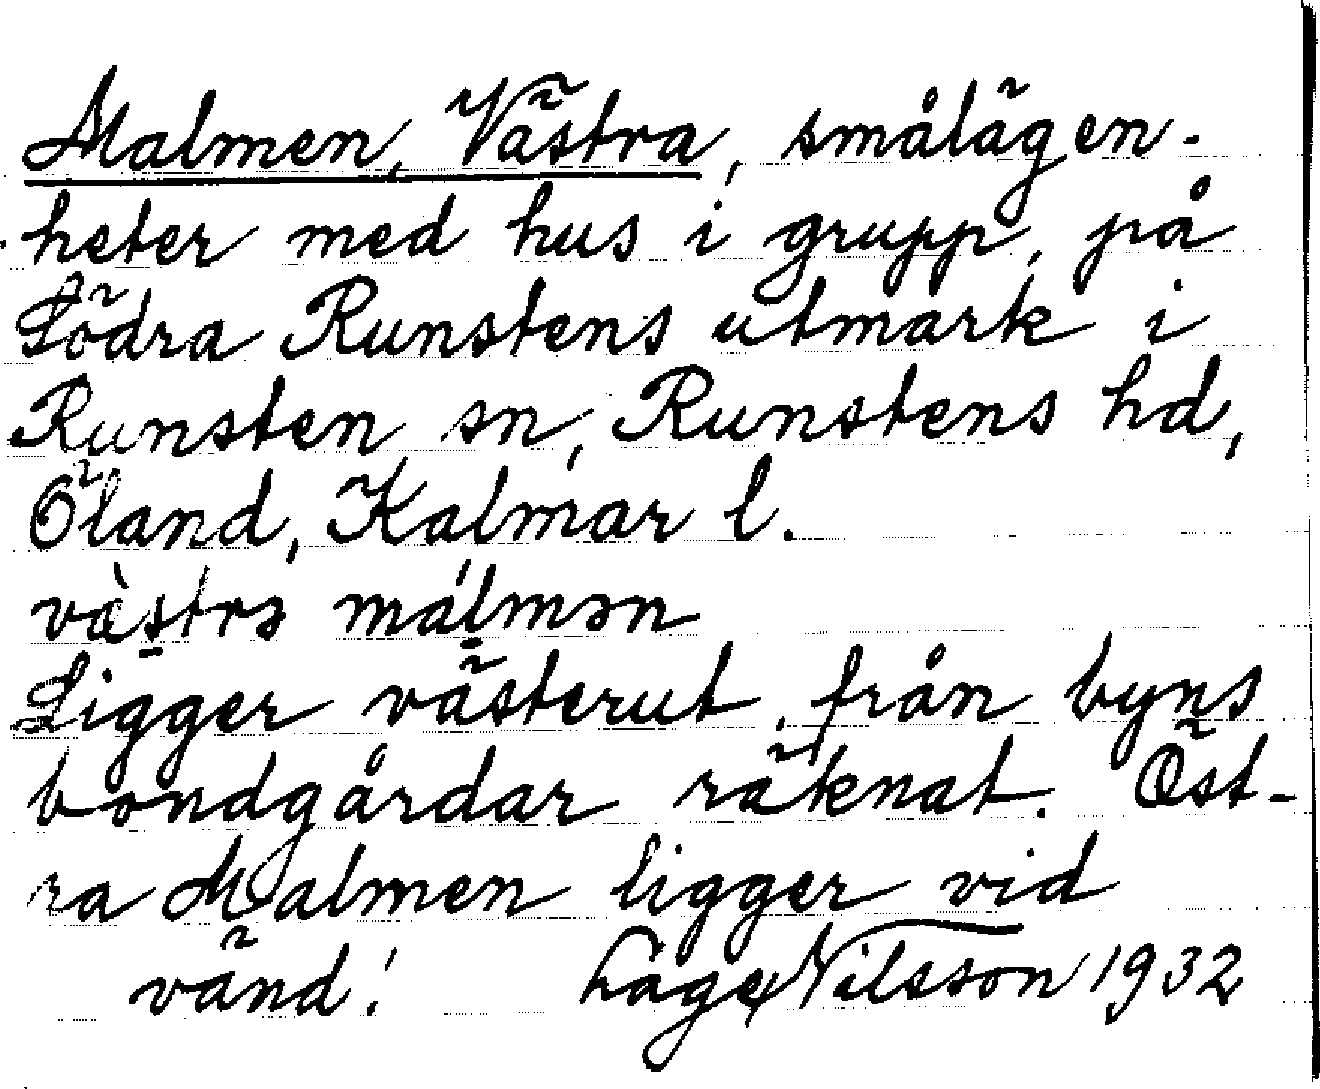 Malmen, Västra, smålägen-
heter med hus i grupp, på
Södra Runstens utmark i
Runsten sn, Runstens hd,
Öland, Kalmar l.
væ̀strə málmən
Ligger västerut, från byns
bondgårdar räknat. Öst-
ra Malmen ligger vid
vänd! Lage Nilsson 1932